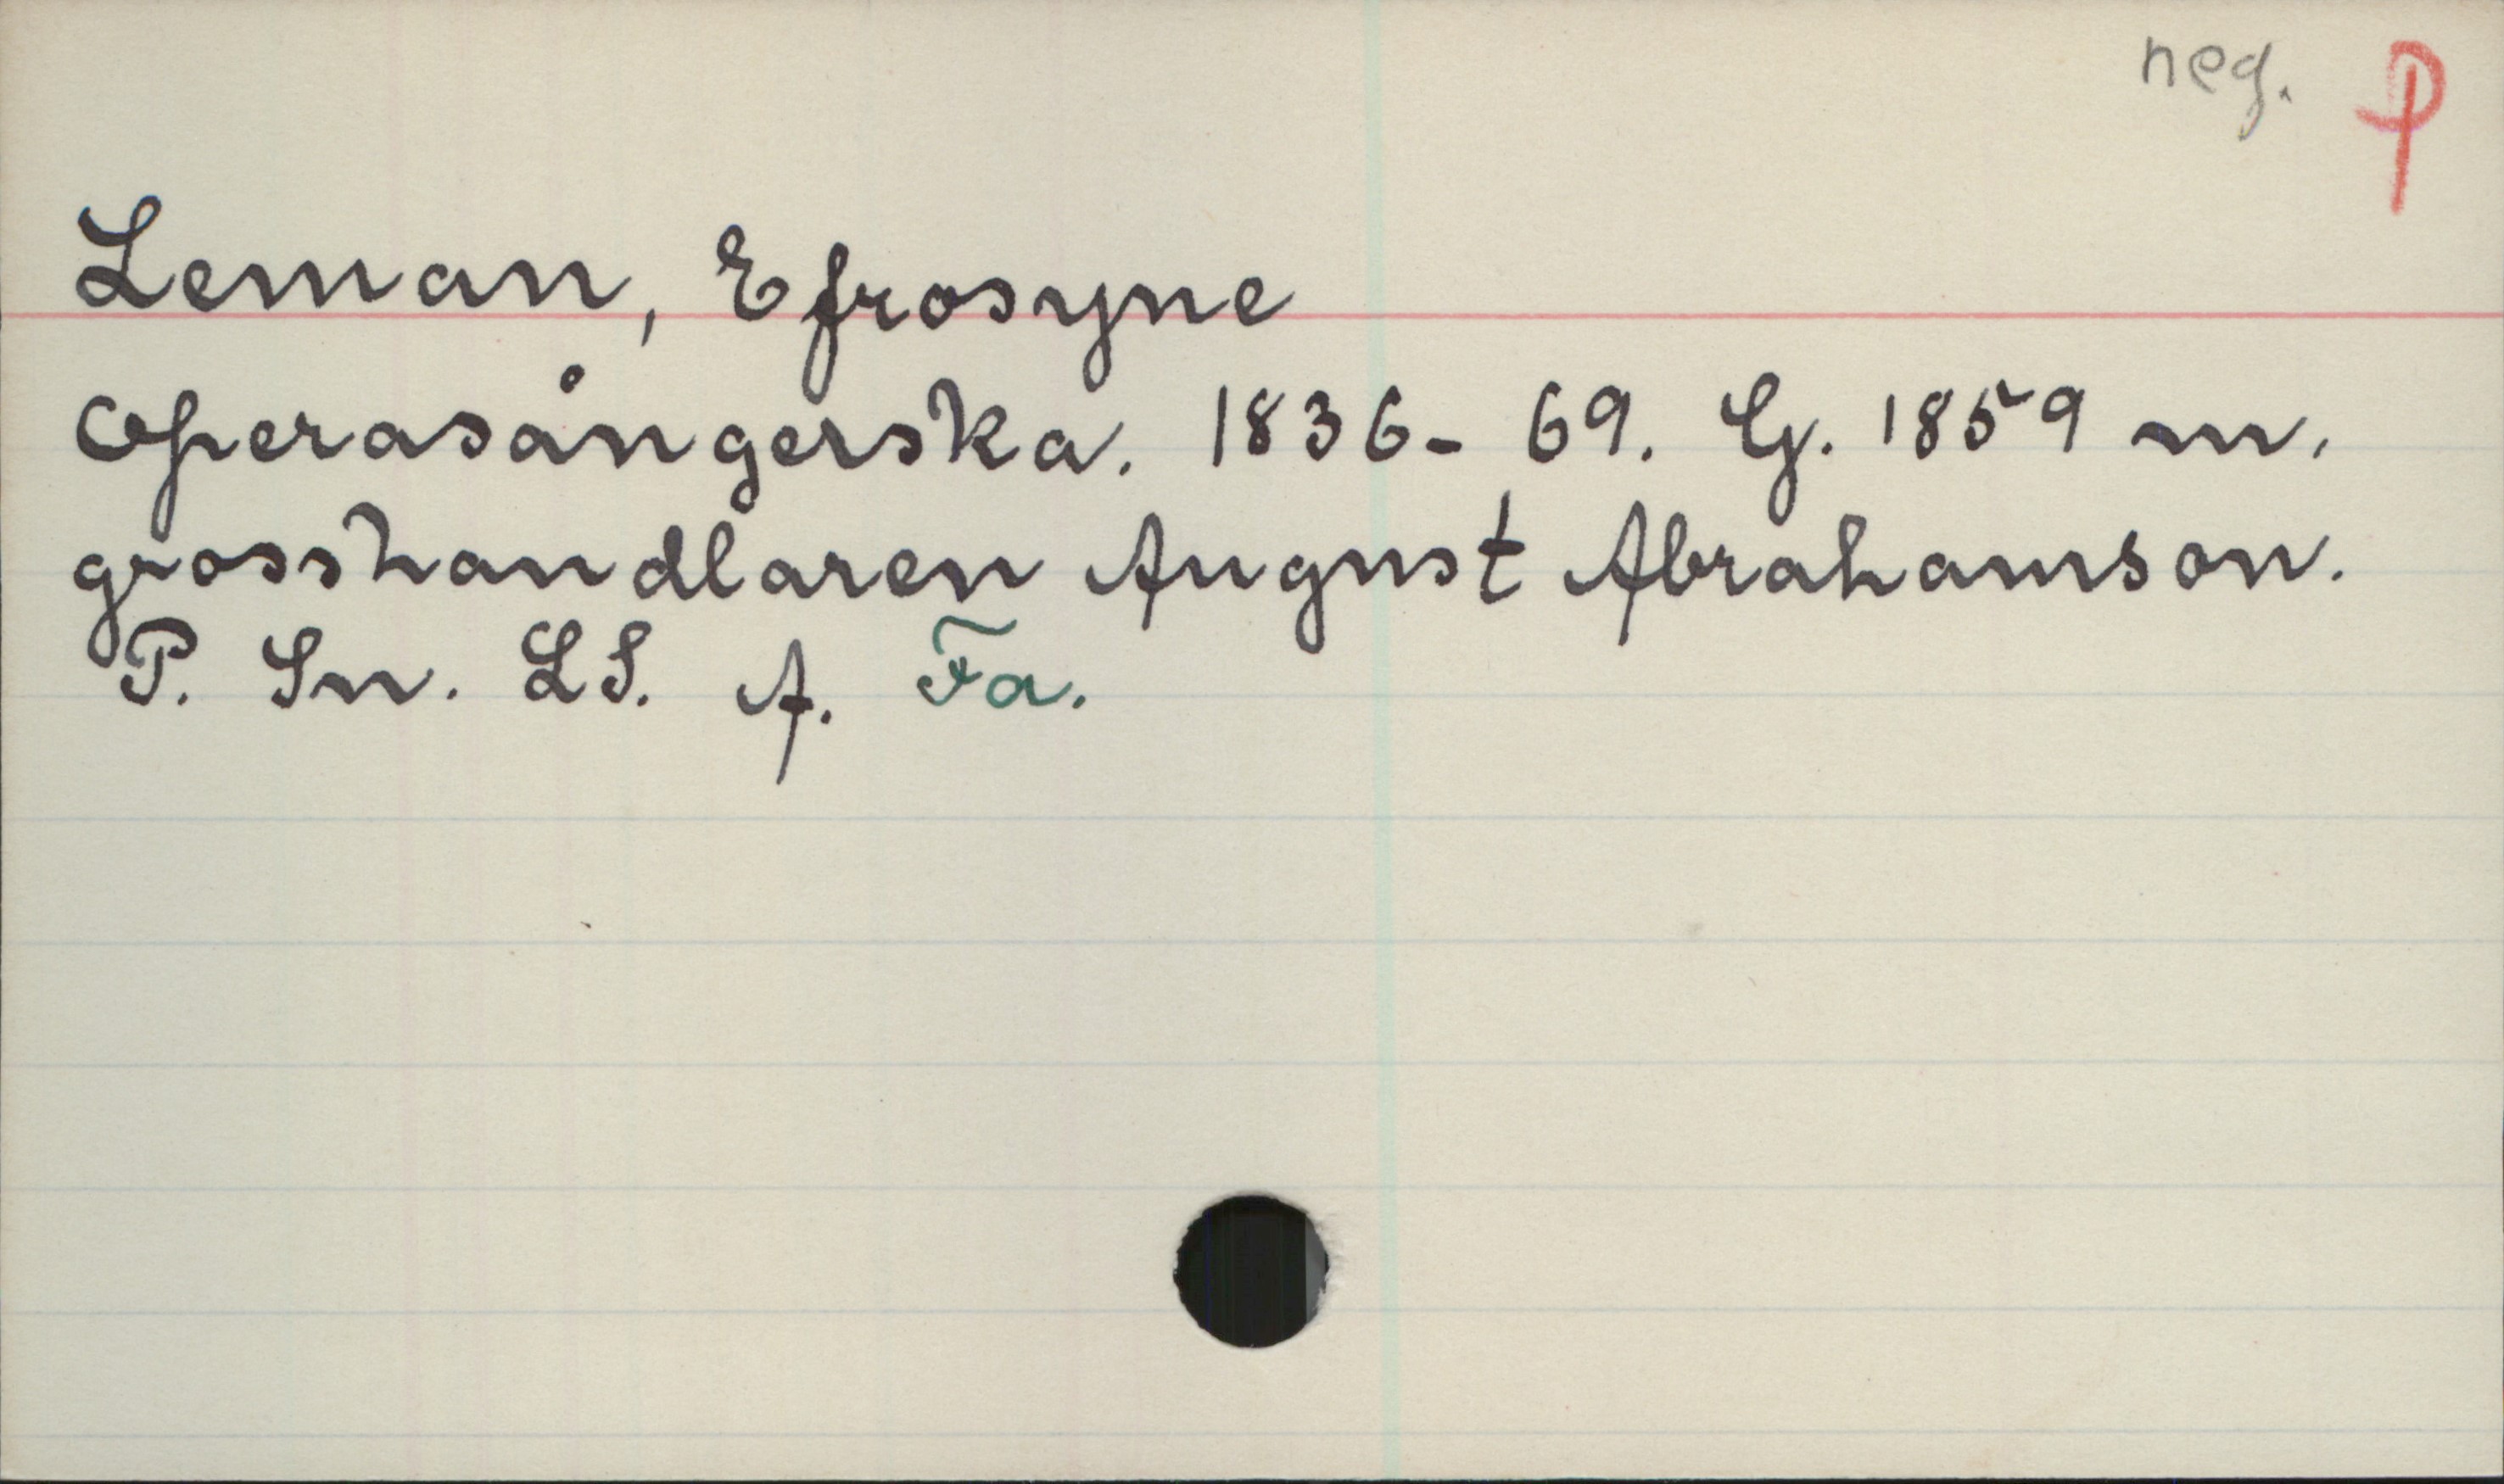 neg. P
Leman, Efrosyne
Operasångerska. 1836- 69. G. 1859 m.
grosshandlaren August Abrahamson.
P. Sn. LS. A. Fa.